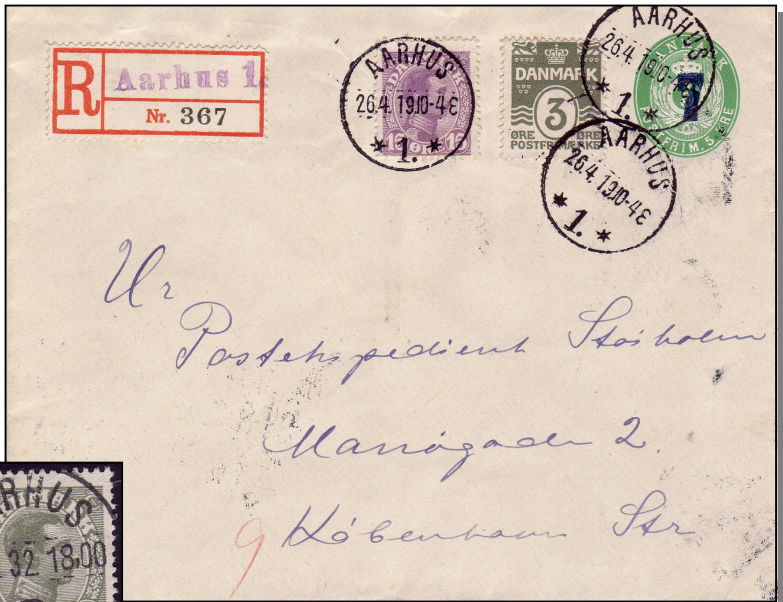 R Aarhus 1.
Nr. 367
AARHUS
26.4. 19.10-4E
* 1. *
15 ØRE 15
DANMARK
3
ØRE ØRE
POSTFRIMÆRKE
AARHUS
26.4. 19.10-4E
* 1. *
7
FRIM. 5 ØRE
AARHUS
26.4. 19.10-4E
* 1. *
Hr
Postekspedient Stosholm
Marrögade 2.
København Str
9
ARHUS
32 18,00